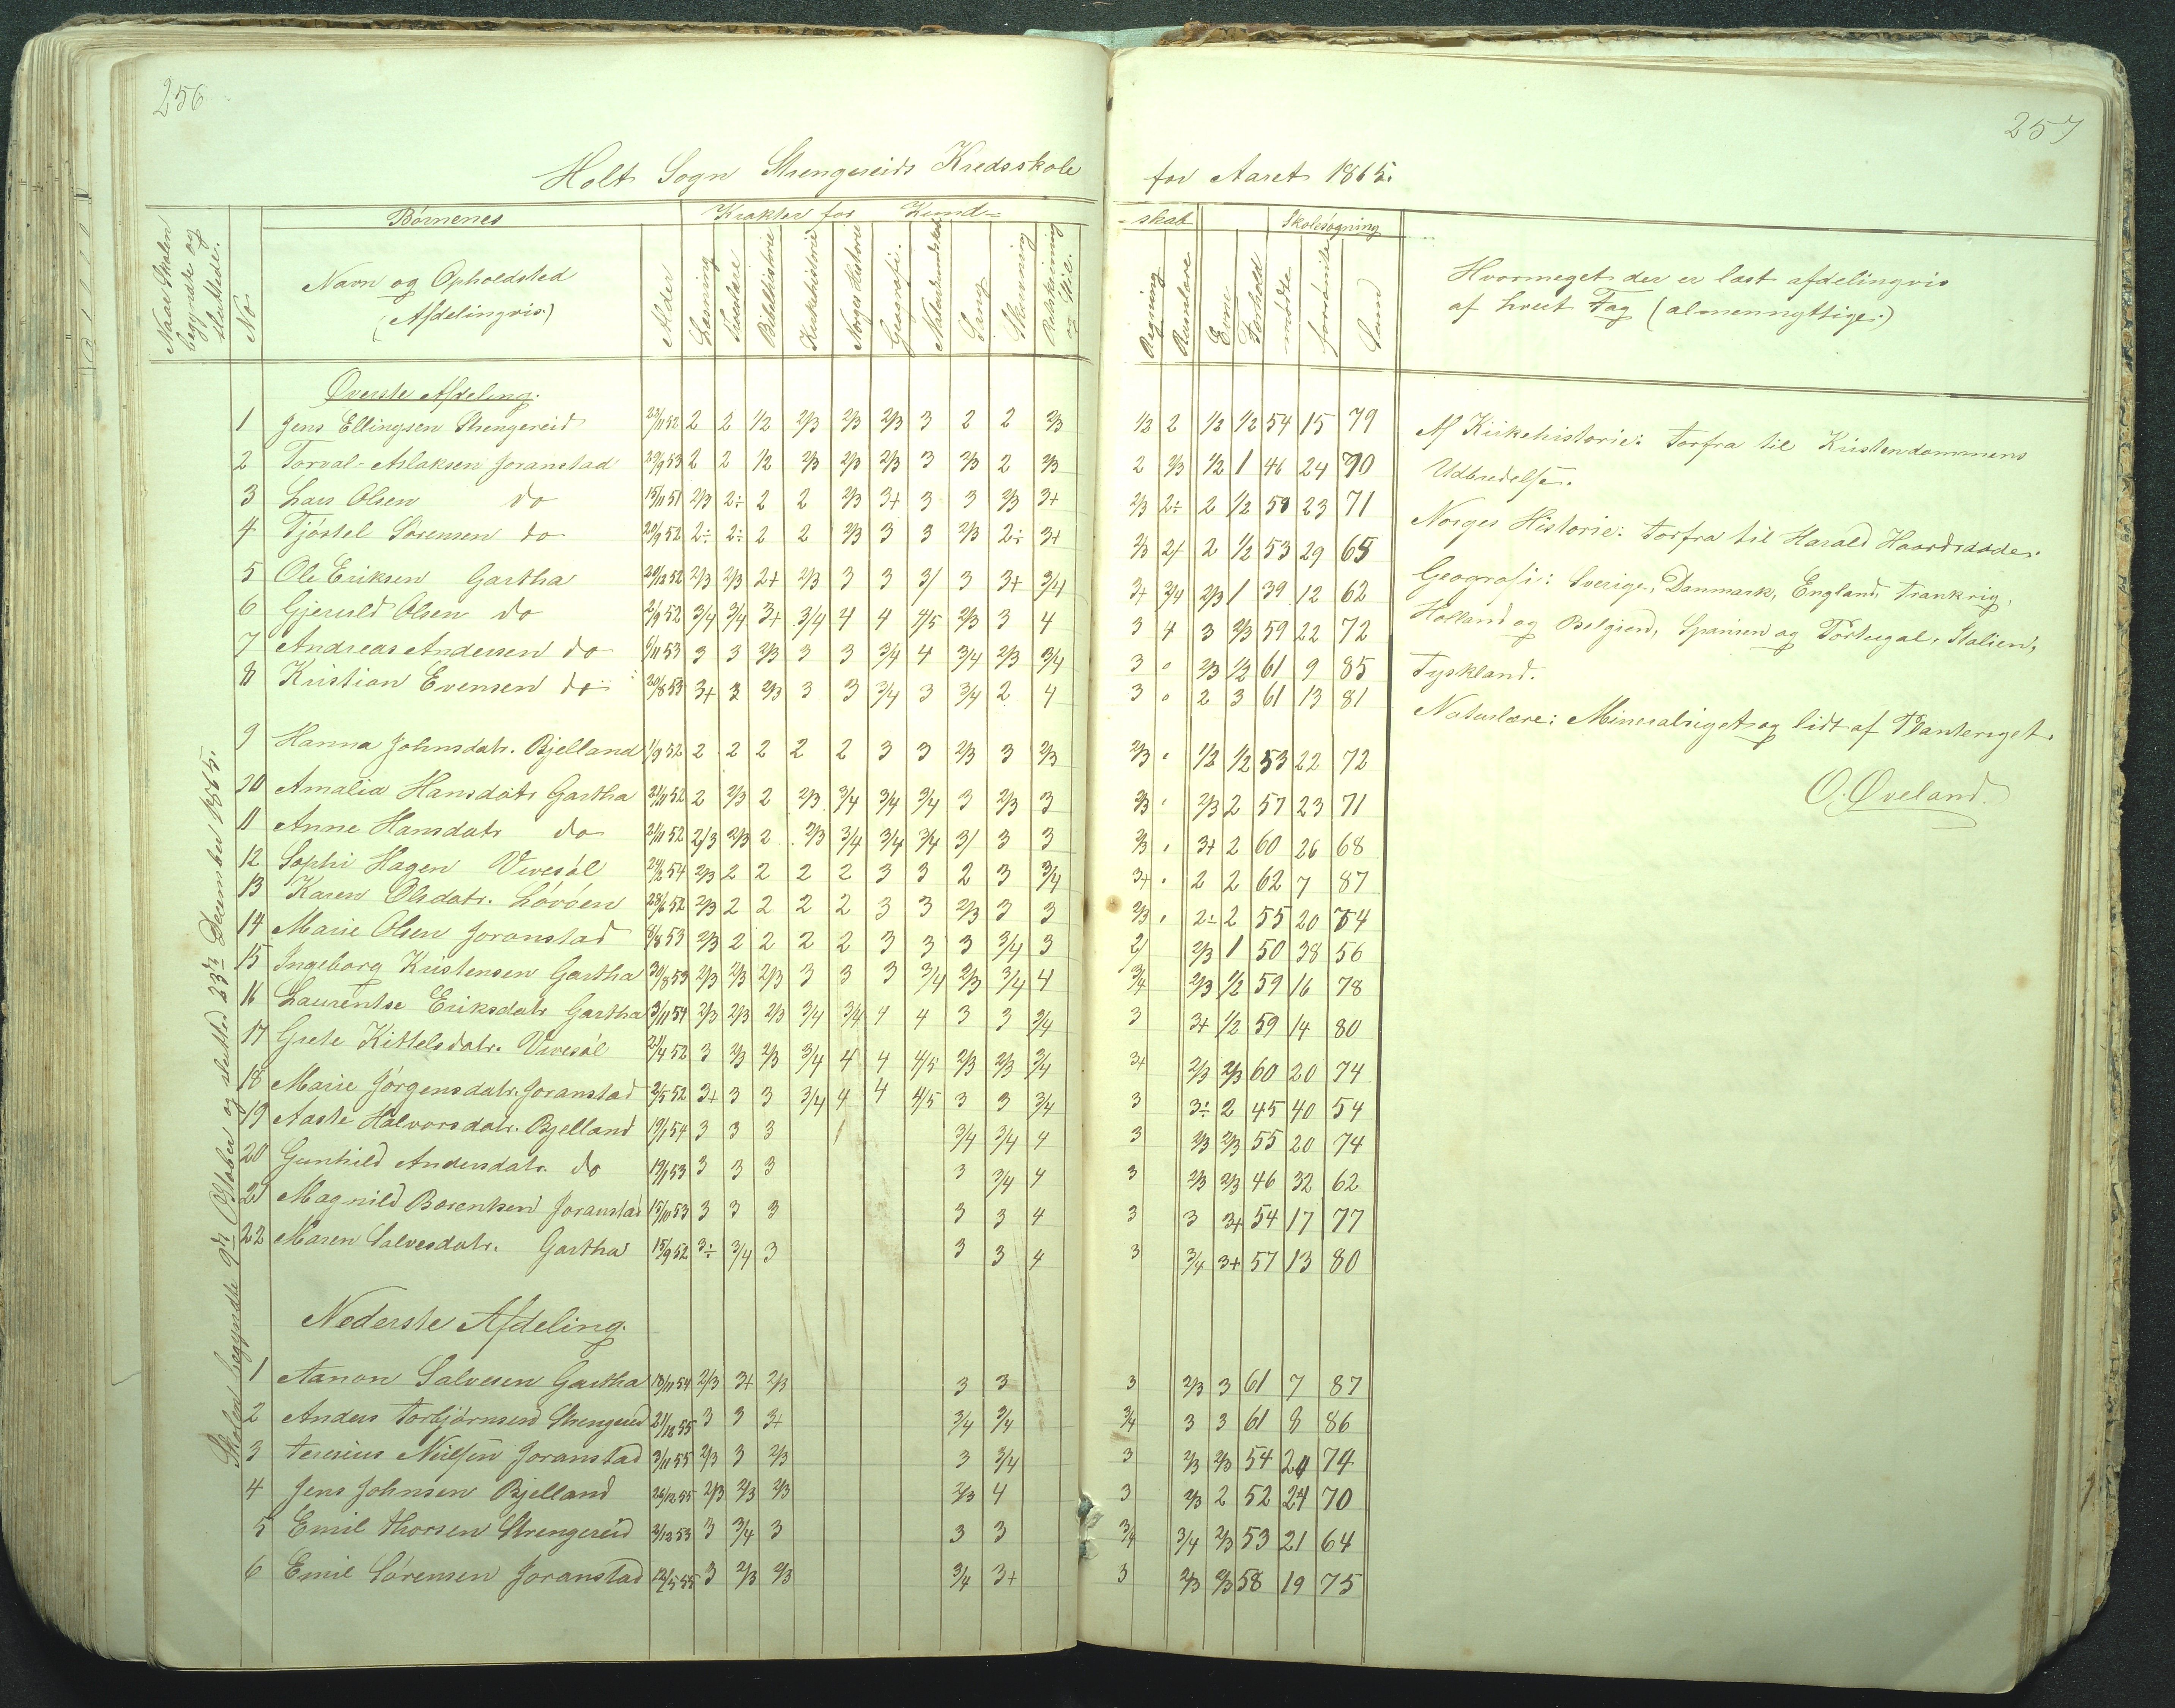 256
Holt Sogn Strengereids Kredsskole
Naar Skolen begyndte og sluttede.
No
Børnenes
Navn og Opholdsted
(Afdelingvis)
Alder
Karakter for Kund-
Læsning
Bibelhistorie
Kirkehistorie
Norges Historie
Geografi.
Sang
Skrivning
Retskrivning og Stil.
Skolen begyndte 9de Oktober og slutted 23de December 1865.
Øverste Afdeling.
1 Jens Ellingsen Strengereid 22/11 52 2 2 1/2 2/3 2/3 2/3 3 2 2 2/3
2 Torval-Aslaksen Joranstad 29/9 53 2 2 1/2 2/3 2/3 2/3 3 2/3 2 2/3
3 Lars Olsen do 15/11 51 2/3 2÷ 2 2 2/3 3+ 3 3 2/3 3+
4 Tjøstel Sørensen do 20/9 52 2÷ 2÷ 2 2 2/3 3 3 2/3 2÷ 3+
5 Ole Eriksen Gartha 20/12 52 2/3 2/3 2+ 2/3 3 3 3/ 3 3+ 3/4
6 Gjeruld Olsen do 2/9 52 3/4 3/4 3+ 3/4 4 4 4/5 2/3 3 4
7 Andreas Andersen do 6/11 53 3 3 2/3 3 3 3/4 4 3/4 2/3 3/4
8 Kristian Evensen do 20/8 53 3+ 3 2/3 3 3 3/4 3 3/4 2 4
9 Hanna Johnsdatr. Bjelland 1/9 52 2 2 2 2 2 3 3 2/3 3 2/3
10 Amalia Hansdatr Gartha 21/11 52 2 2/3 2 2/3 3/4 3/4 3/4 3 2/3 3
11 Anne Hansdatr do 21/11 52 2/3 2/3 2 2/3 3/4 3/4 3/4 3/ 3 3
12 Sophi Hagen Vivesøl 24/2 54 2/3 2 2 2 2 3 3 2 3 3/4
13 Karen Olsdatr. Løvøen 28/6 52 2/3 2 2 2 2 3 3 2/3 3 3
14 Marie Olsen Joranstad 8/8 53 2/3 2 2 2 2 3 3 3 3/4 3
15 Ingeborg Kristensen Gartha 30/8 53 2/3 2/3 2/3 3 3 3 3/4 2/3 3/4 4
16 Laurentse Eriksdatr Gartha 3/11 54 2/3 2/3 2/3 3/4 3/4 4 4 3 3 3/4
17 Grete Kittelsdatr. Vivesøl 21/4 52 3 2/3 2/3 3/4 4 4 4/5 2/3 2/3 3/4
18 Marie Jørgensdatr. Joranstad 2/5 52 3+ 3 3 3/4 4 4 4/5 3 3 3/4
19 Aaste Halvorsdatr. Bjelland 19/1 54 3 3 3 3/4 3/4 4
20 Gunhild Andersdatr. do 19/1 53 3 3 3 3 3/4 4
21 Magnild Borentsen Joranstad 15/10 53 3 3 3 3 3 4
22 Maren Salvesdatr. Gartha 15/9 52 3÷ 3/4 3 3 3 4
Nederste Afdeling.
1 Aanon Salvesen Gartha 18/11 54 2/3 3+ 2/3 3 3
2 Anders Torbjørnsen Strengereid 21/12 55 3 3 3+ 3/4 3/4
3 Teresius Nielsen Joranstad 3/11 55 2/3 3 2/3 3 3/4
4 Jens Johnsen Bjelland 26/12 55 2/3 2/3 2/3 2/3 4
5 Emil Thorsen Strengereid 2/12 53 3 3/4 3 3 3
6 Emil Sørensen Joranstad 12/5 55 3 2/3 2/3 3/4 3+
257
for Aaret 1865.
-skab
Regning
Evne
Forhold
Skolesøgning
mødte
forsømte
Sum
Hvormeget der er læst afdelingvis
af hvert Fag (almennyttige)
1/2 2 1/2 1/2 54 15 79
2 2/3 1/2 1 46 24 70
2/3 2÷ 2 1/2 50 23 71
2/3 2+ 2 1/2 53 29 65
3+ 3/4 2/3 1 39 12 62
3 4 3 2/3 59 22 72
3 0 2/3 1/2 61 9 85
3 0 2 3 61 13 81
2/3 1/2 1/2 53 22 72
2/3 2/3 2 57 23 71
2/3 3+ 2 60 26 68
3+ 2 2 62 7 87
2/3 2÷ 2 55 20 74
2/ 2/3 1 50 38 56
3/4 2/3 1/2 59 16 78
3 3+ 1/2 59 14 80
3+ 2/3 2/3 60 20 74
3 3÷ 2 45 40 54
3 2/3 2/3 55 20 74
3 2/3 2/3 46 32 62
3 3 3+ 54 17 77
3 3/4 3+ 57 13 80
3 2/3 3 61 7 87
3/4 3 3 61 8 86
3 2/3 2/3 54 20 74
3 2/3 2 52 24 70
3/4 3/4 2/3 53 21 64
3 2/3 2/3 58 19 75
Af Kirkehistorie: Forfra til Kristendommens
Udbredelse.
Norges Historie: Forfra til Harald Haardraade.
Geografi: Sverige, Danmark, England, Frankrig,
Holland og Belgien, Spanien og Portugal, Italien,
Tyskland.
Naturlære: Mineralriget og lidt af Planteriget.
O. Øveland.